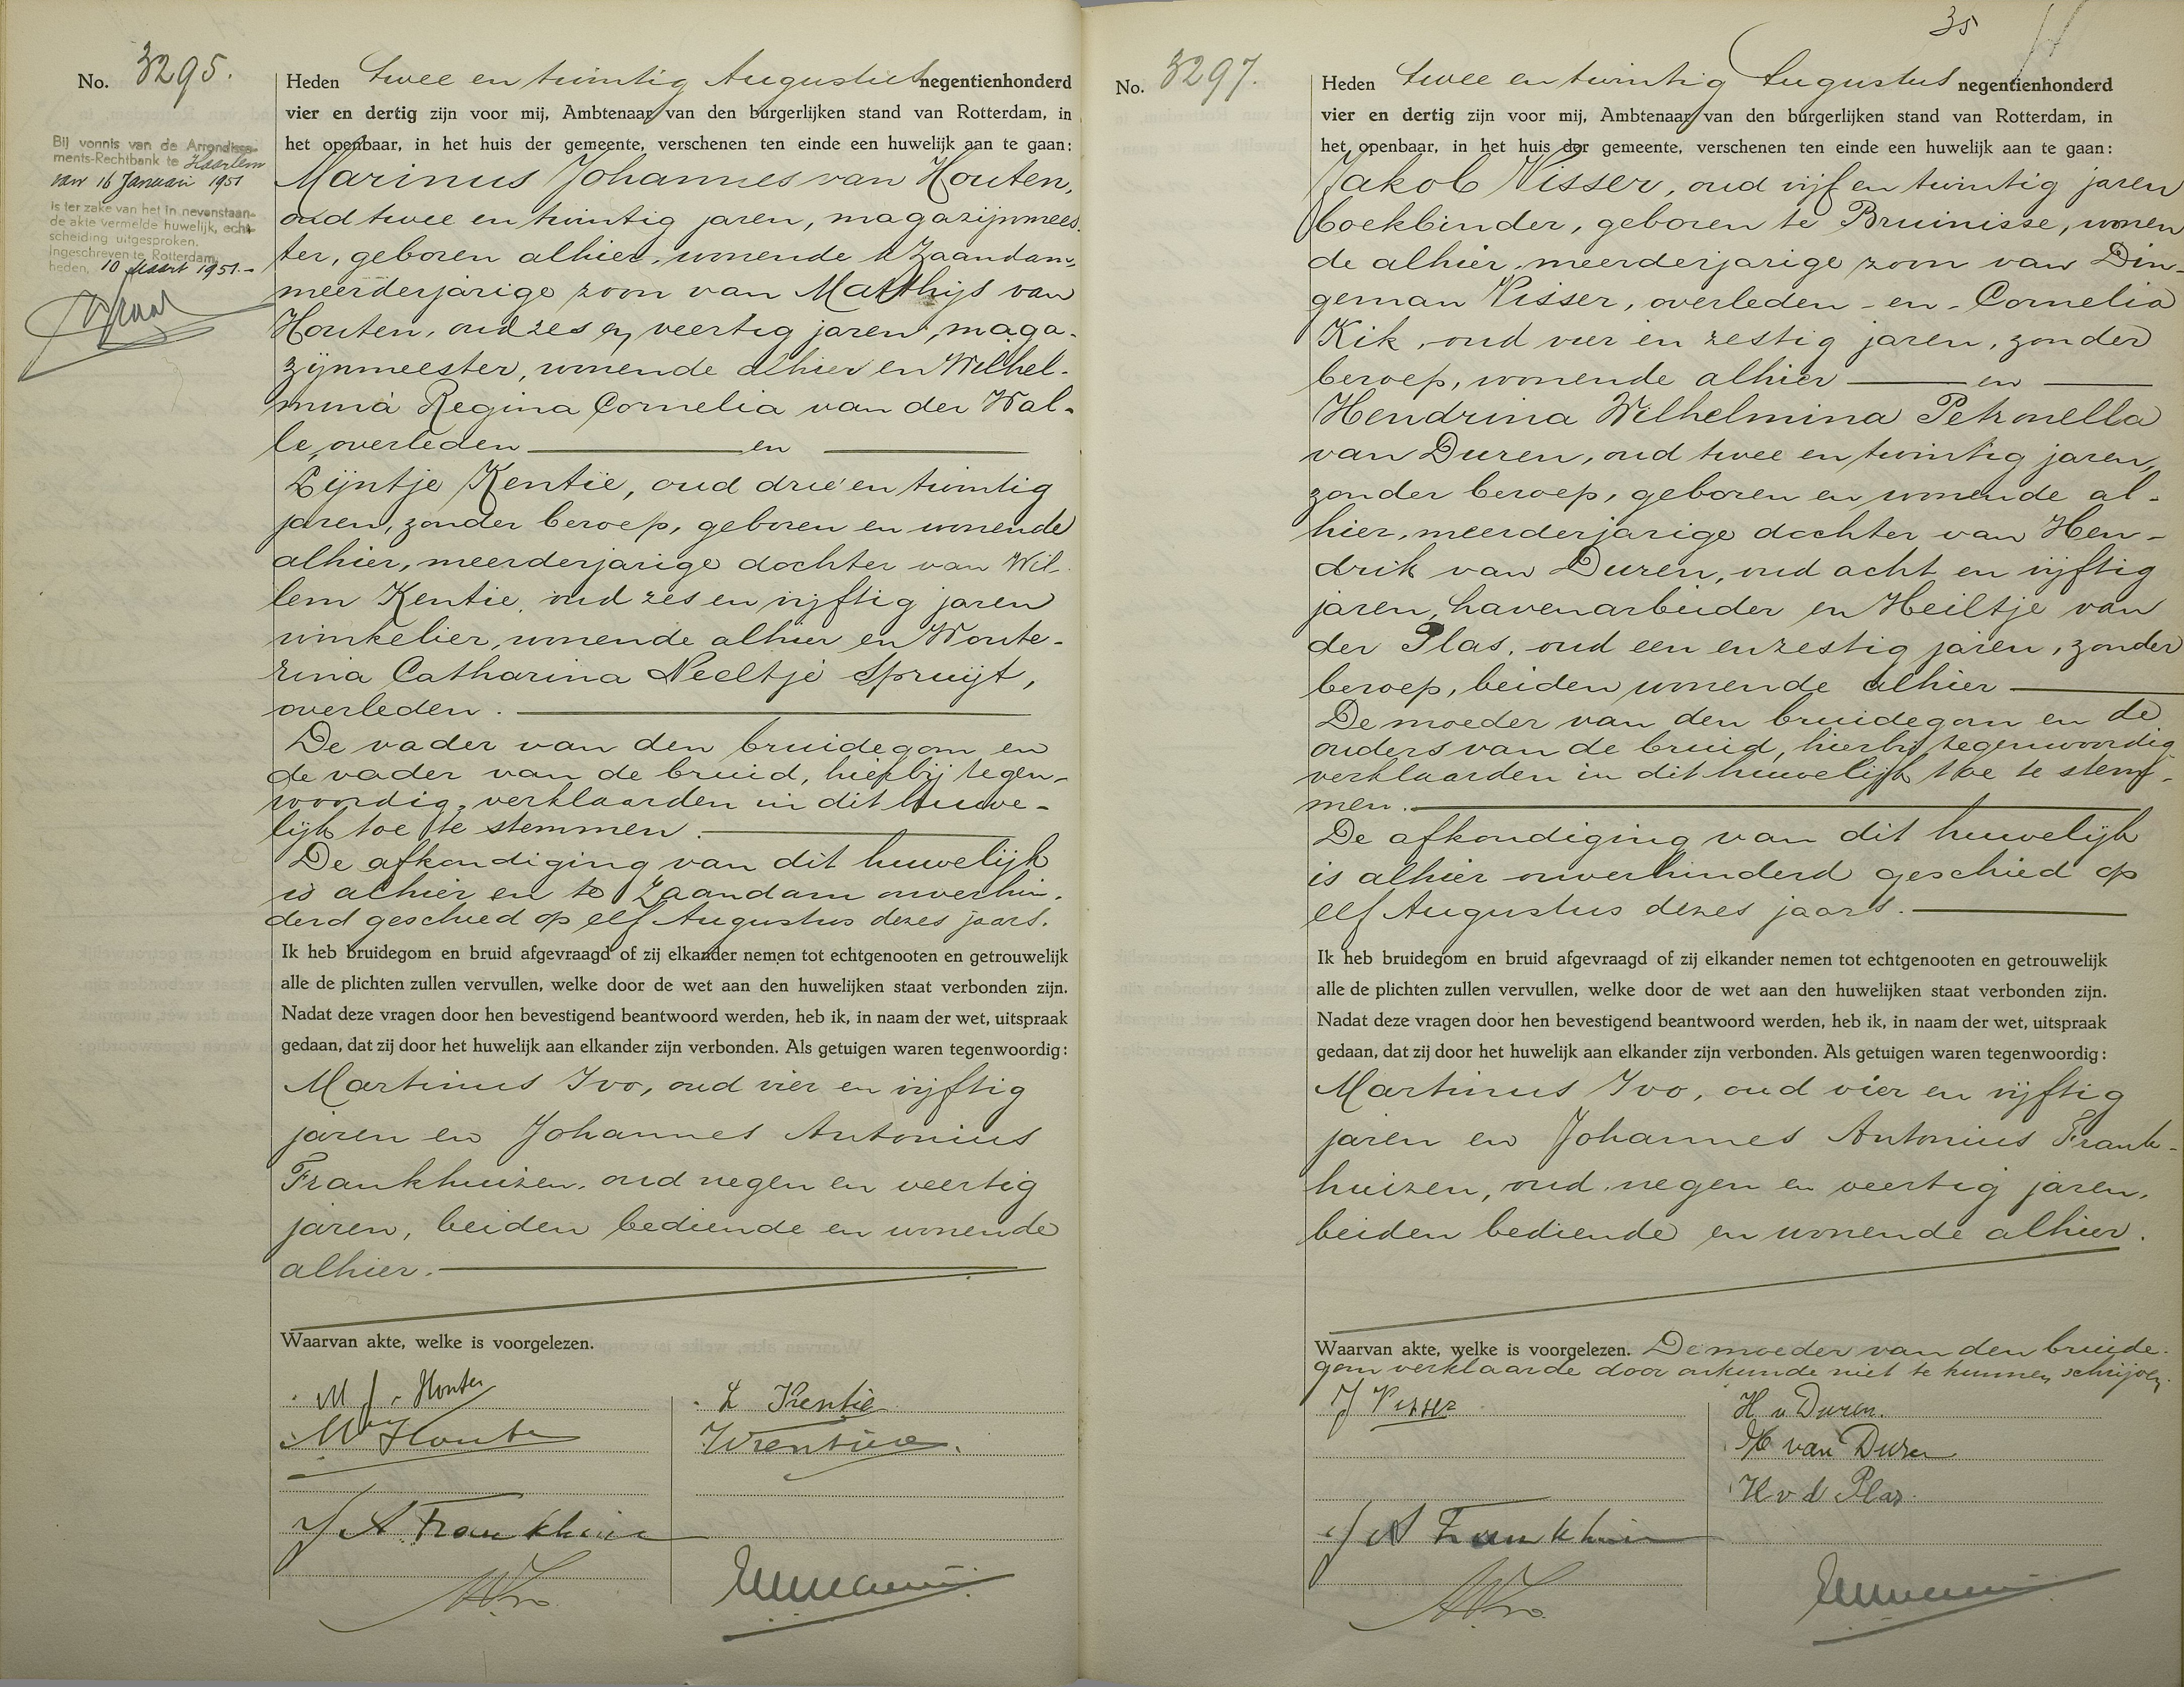 No. 3295.
Bij vonnis van de Arrondisse-
ments-Rechtbank te Haarlem
van 16 Januari 1951
is ter zake van het in nevenstaan-
de akte vermelde huwelijk, echt-
scheiding uitgesproken.
Ingeschreven te Rotterdam,
heden, 10 Maart 1951.-
Heden twee en twintig Augustus negentienhonderd
vier en dertig zijn voor mij, Ambtenaar van den burgerlijken stand van Rotterdam, in
het openbaar, in het huis der gemeente, verschenen ten einde een huwelijk aan te gaan:
Marinus Johannes van Houten,
oud twee en twintig jaren, magazijnmees-
ter, geboren alhier, wonende te Zaandam,
meerderjarige zoon van Matthijs van
Houten, oud zes en veertig jaren, maga-
zijnmeester, wonende alhier en Wilhel-
mina Regina Cornelia van der Wal-
le, overleden en
Lijntje Kentie, oud drie en twintig
jaren, zonder beroep, geboren en wonende
alhier, meerderjarige dochter van Wil-
lem Kentie, oud zes en vijftig jaren
winkelier, wonende alhier en Woute-
rina Catharina Neeltje Spruijt,
overleden.
De vader van den bruidegom en
de vader van de bruid, hierbij tegen-
woordig, verklaarden in dit huwe-
lijk toe te stemmen.
De afkondiging van dit huwelijk
is alhier en te Zaandam onverhin-
derd geschied op elf Augustus dezes jaars.
Ik heb bruidegom en bruid afgevraagd of zij elkander nemen tot echtgenooten en getrouwelijk
alle de plichten zullen vervullen, welke door de wet aan den huwelijken staat verbonden zijn.
Nadat deze vragen door hen bevestigend beantwoord werden, heb ik, in naam der wet, uitspraak
gedaan, dat zij door het huwelijk aan elkander zijn verbonden. Als getuigen waren tegenwoordig:
Martinus Ivo, oud vier en vijftig
jaren en Johannes Antonius
Frankhuizen, oud negen en veertig
jaren, beiden bediende en wonende
alhier.
Waarvan akte, welke is voorgelezen.
M J v Houten
L Kentie
M v Houten
W Kentie
J A Frankhuizen
35
No. 3297.
Heden twee en twintig Augustus negentienhonderd
vier en dertig zijn voor mij, Ambtenaar van den burgerlijken stand van Rotterdam, in
het openbaar, in het huis der gemeente, verschenen ten einde een huwelijk aan te gaan:
Jakob Visser, oud vijf en twintig jaren
boekbinder, geboren te Bruinisse, wonen
de alhier, meerderjarige zoon van Din-
geman Visser, overleden - en - Cornelia
Kik, oud vier en zestig jaren, zonder
beroep, wonende alhier en
Hendrina Wilhelmina Petronella
van Duren, oud twee en twintig jaren,
zonder beroep, geboren en wonende al-
hier, meerderjarige dochter van Hen-
drik van Duren, oud acht en vijftig
jaren, havenarbeider en Heiltje van
der Plas, oud een en zestig jaren, zonder
beroep, beiden wonende alhier
De moeder van den bruidegom en de
ouders van de bruid, hierbij tegenwoordig
verklaarden in dit huwelijk toe te stem-
men.
De afkondiging van dit huwelijk
is alhier onverhinderd geschied op
elf Augustus dezes jaars.
Ik heb bruidegom en bruid afgevraagd of zij elkander nemen tot echtgenooten en getrouwelijk
alle de plichten zullen vervullen, welke door de wet aan den huwelijken staat verbonden zijn.
Nadat deze vragen door hen bevestigend beantwoord werden, heb ik, in naam der wet, uitspraak
gedaan, dat zij door het huwelijk aan elkander zijn verbonden. Als getuigen waren tegenwoordig:
Martinus Ivo, oud vier en vijftig
jaren en Johannes Antonius Frank-
huizen, oud negen en veertig jaren,
beiden bediende en wonende alhier.
Waarvan akte, welke is voorgelezen. De moeder van den bruide-
gom verklaarde door onkunde niet te kunnen schrijven.
J Visser
H v Duren.
H van Duren
H v d Plas
J A Frankhuizen